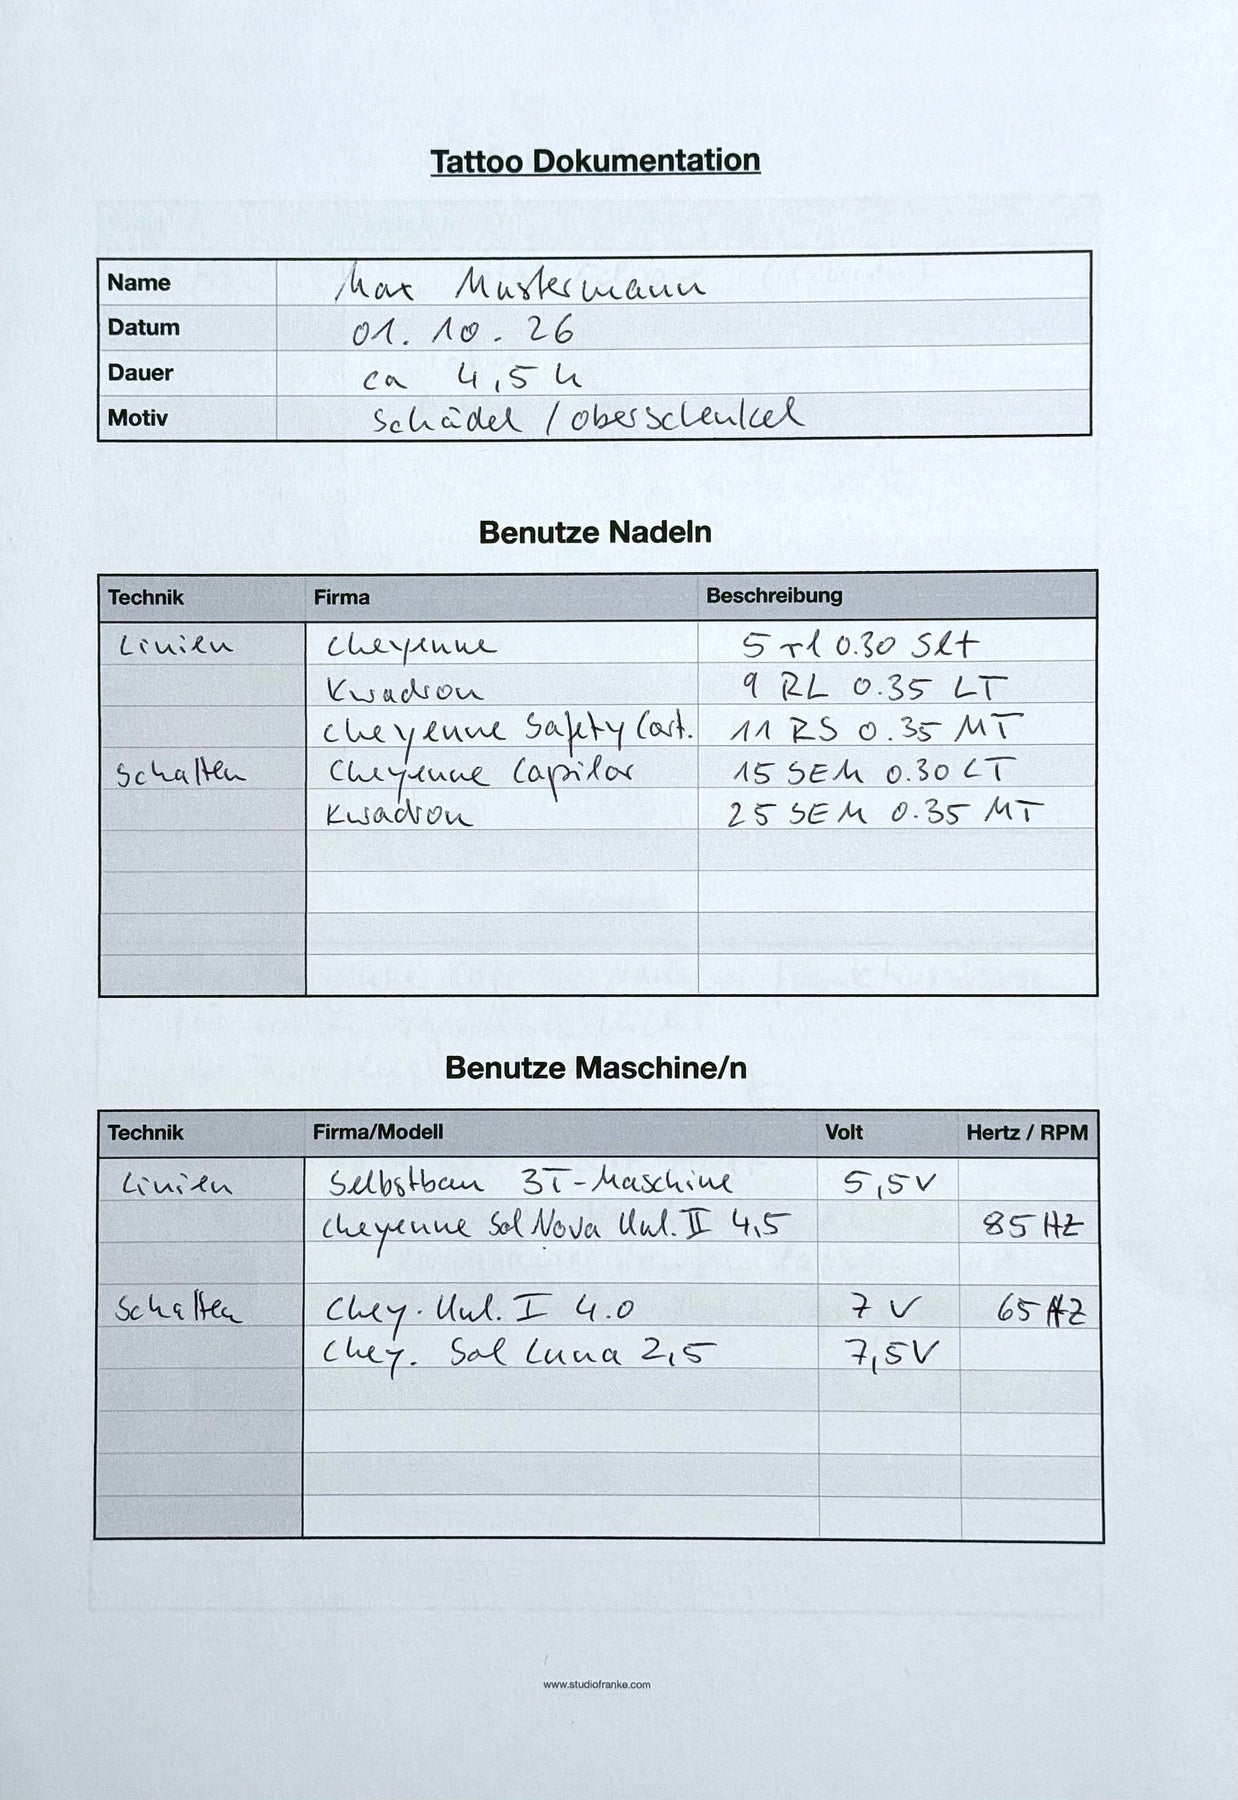 Tattoo Dokumentation
Name Max Mustermann
Datum 01. 10. 26
Dauer ca 4,5 h
Motiv Schädel / Oberschenkel
Benutze Nadeln
Technik Firma Beschreibung
Linien Cheyenne 5 rl 0.30 SLT
Kwadron 9 RL 0.35 LT
Cheyenne Safety Cart. 11 RS 0.35 MT
Schatten Cheyenne Capilar 15 SEM 0.30 LT
Kwadron 25 SEM 0.35 MT
Benutze Maschine/n
Technik Firma/Modell Volt Hertz / RPM
Linien Selbstbau 3T-Maschine 5,5V
Cheyenne Sol Nova Unl. II 4,5 85 HZ
Schatten Chey. Unl. I 4.0 7 V 65 HZ
Chey. Sol Luna 2,5 7,5V
www.studiofranke.com